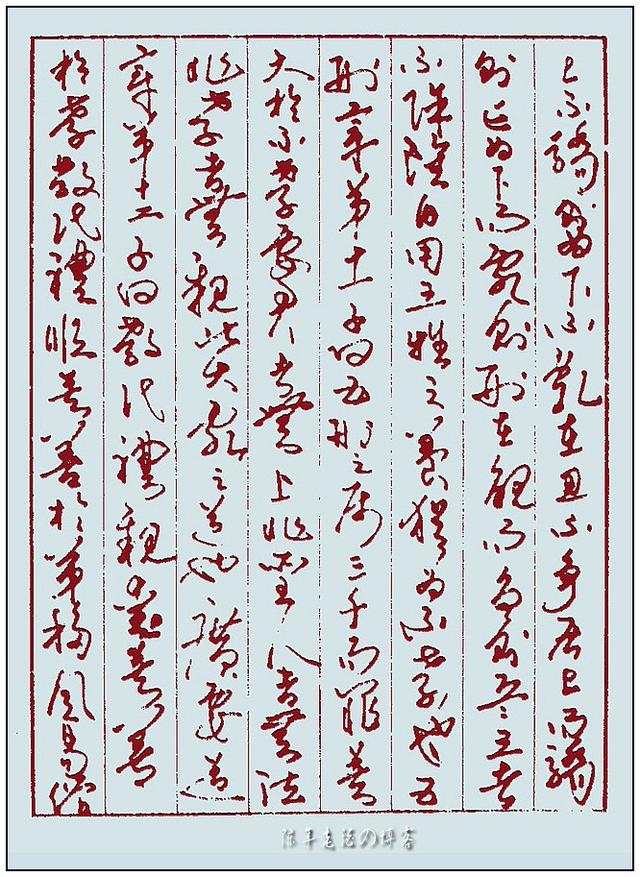 上不驕為下不亂在丑不爭居上而驕
則亡為下而亂則刑在醜而爭則兵三者
不除雖日用三牲之養猶為不孝也五
刑章第十一子曰五刑之屬三千而罪莫
大於不孝要君者無上非聖人者無法
非孝者無親此大亂之道也廣要道
章第十二子曰教民禮親愛莫善
於孝教民禮順莫善於弟移風易俗
の博客